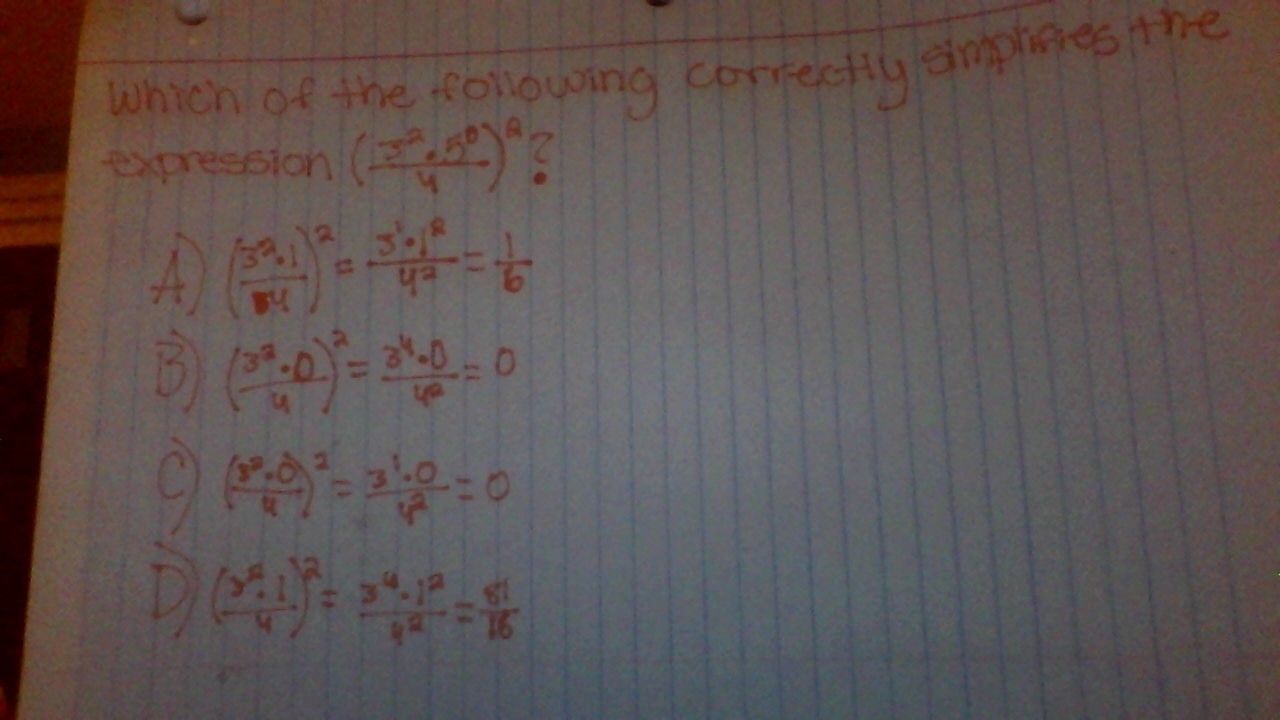 Which of the following correctly simplifies the
expression (3²·5⁰/4)²?
A) (3²·1/4)² = 3¹·1²/4² = 1/6
B) (3²·0/4)² = 3⁴·0/4² = 0
C) (3²·0/4)² = 3¹·0/4² = 0
D) (3²·1/4)² = 3⁴·1²/4² = 81/16